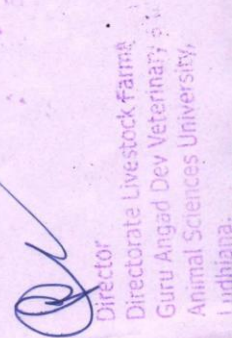 Director
Directorate Livestock Farms
Guru Angad Dev Veterinary
Animal Sciences University,
Ludhiana.